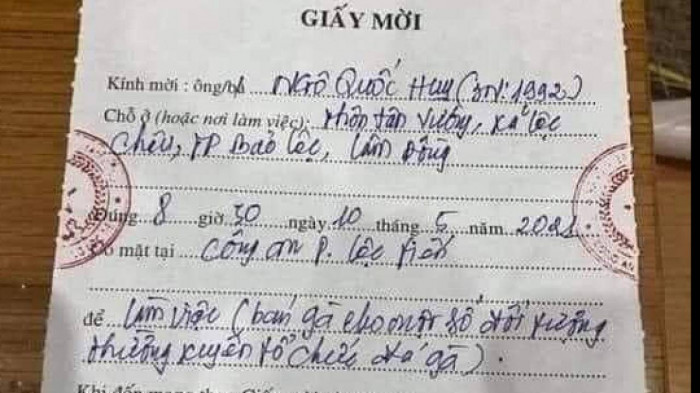 GIẤY MỜI
Kính mời : ông/bà Ngô Quốc Huy (SN: 1992)
Chỗ ở (hoặc nơi làm việc): thôn Tân Vượng, xã Lộc
Châu, TP Bảo Lộc, Lâm Đồng
Đúng 8 giờ 30 ngày 10 tháng 5 năm 2021
Có mặt tại Công an P. Lộc Tiến
để làm việc (bán gà cho một số đối tượng
thường xuyên tổ chức đá gà).
Khi đến mang theo Giấy mời